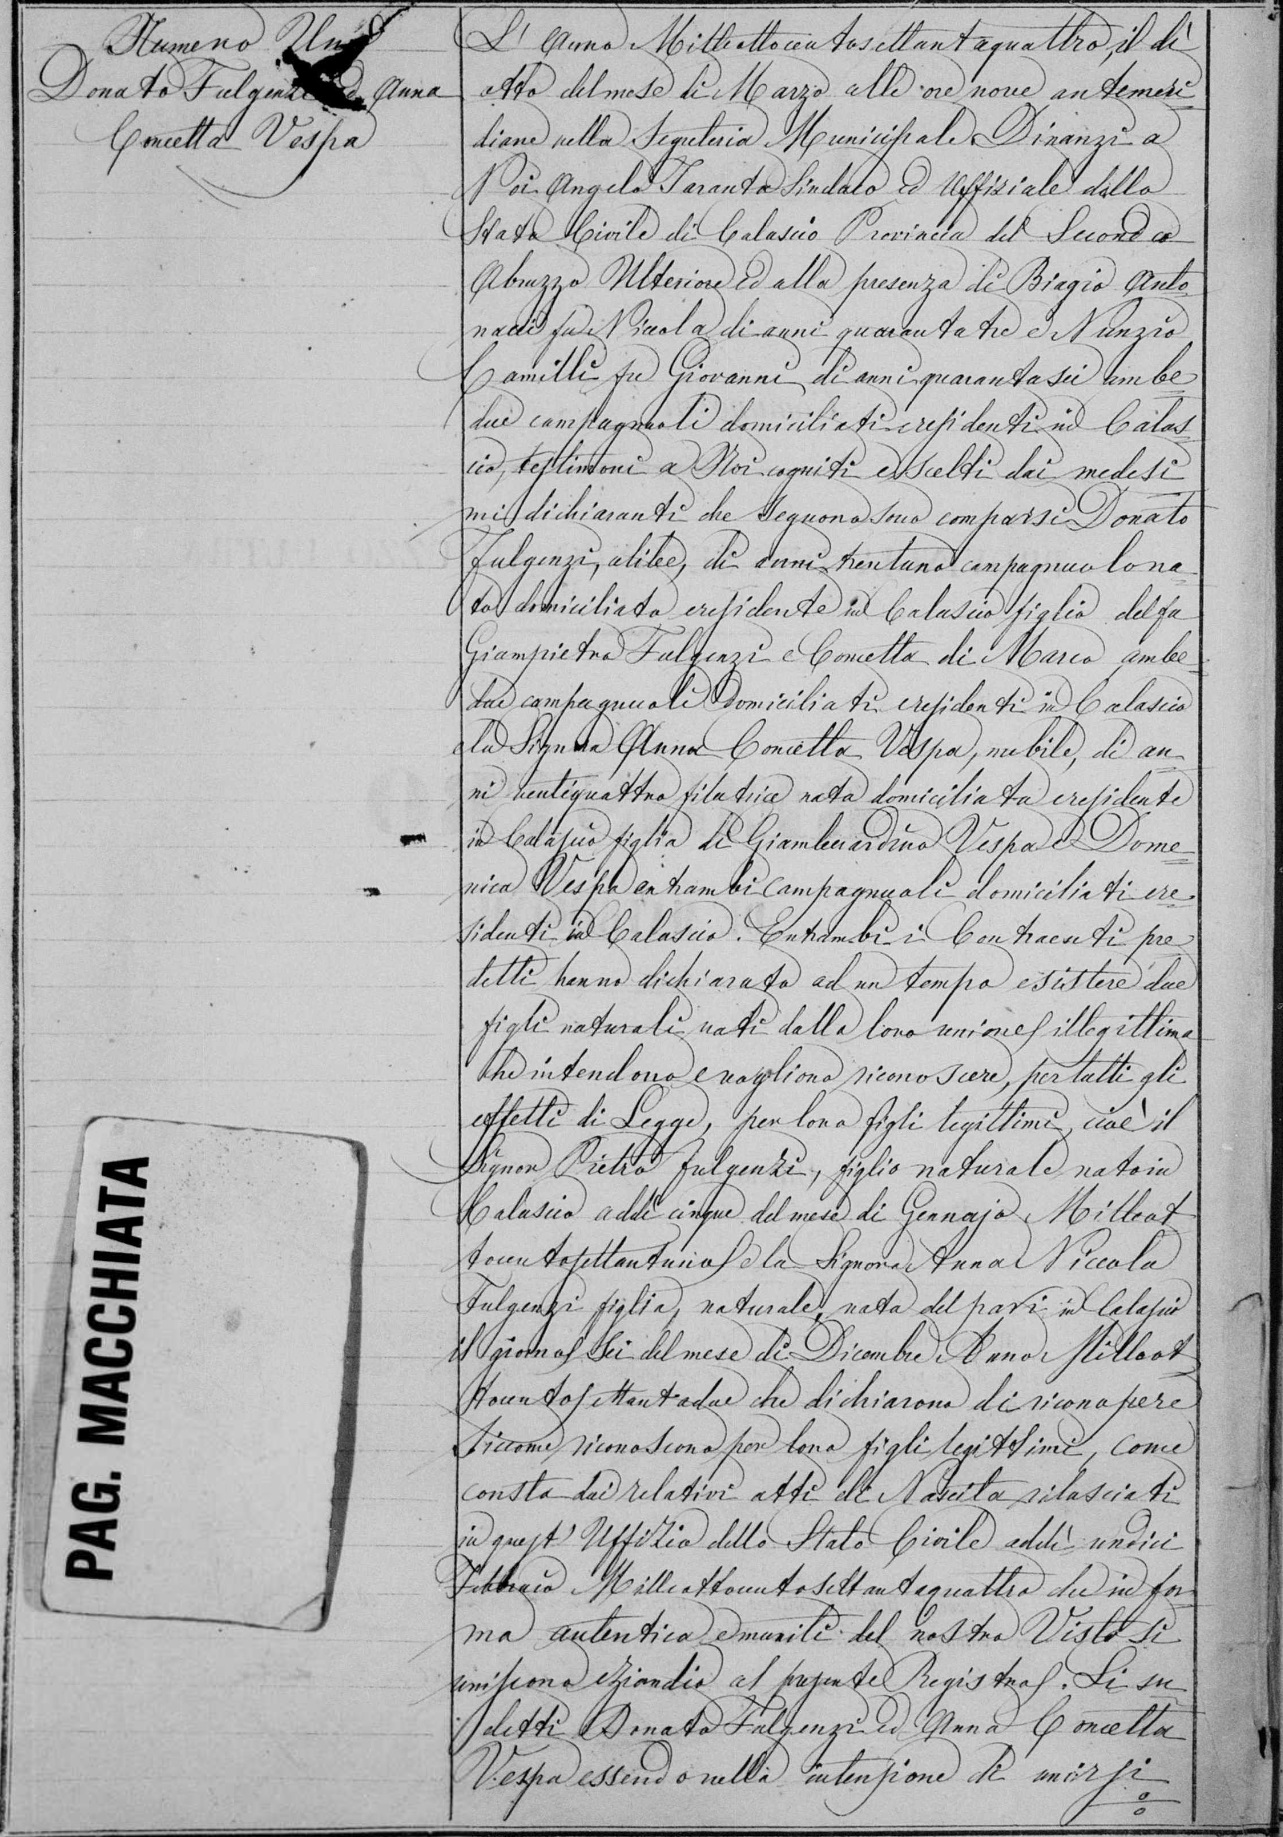 Numero Uno
Donato Fulgenzi ed Anna
Concetta Vespa
L'Anno Milleottocentosettantaquattro, il dì
otto del mese di Marzo alle ore nove antemeri
diane nella Segreteria Municipale. Dinanzi a
Noi Angelo Taranta Sindaco ed Uffiziale dello
Stato Civile di Calascio Provincia del Secondo
Abruzzo Ulteriore ed alla presenza di Biagio Anto
nacci fu Nicola di anni quarantatre e Nunzio
Camilli fu Giovanni di anni quarantasei ambe
due campagnuoli domiciliati e residenti in Calas
cio, testimoni a Noi cogniti e scelti dai medesi
mi dichiaranti che seguono sono comparsi Donato
Fulgenzi, celibe, di anni trentuno campagnuolo na
to domiciliato e residente in Calascio figlio del fu
Giampietro Fulgenzi e Concetta di Marco ambe
due campagnuoli domiciliati e residenti in Calascio
e la Signora Anna Concetta Vespa, nubile, di an
ni ventiquattro filatrice nata domiciliata e residente
in Calascio figlia di Giamberardino Vespa e Dome
nica Vespa entrambi campagnuoli domiciliati e re
sidenti in Calascio. Entrambi i Contraenti pre
detti hanno dichiarato ad un tempo esistere due
figli naturali nati dalla loro unione illegittima
che intendono e vogliono riconoscere, per tutti gli
effetti di Legge, per loro figli legittimi, cioè il
Signor Pietro Fulgenzi, figlio naturale nato in
Calascio addì cinque del mese di Gennajo Milleot
tocentosettantuno e la Signora Anna Niccola
Fulgenzi figlia, naturale, nata del pari in Calascio
il giorno Sei del mese di Dicembre Anno Milleot
tocentosettantadue che dichiarono di riconoscere
siccome riconoscono per loro figli legittimi, come
consta dai relativi atti di Nascita rilasciati
in quest'Uffizio dello Stato Civile addì undici
Febbraio Milleottocentosettantaquattro che in for
ma autentica e muniti del nostro Visto si
uniscono eziandio al presente Registro. Li su
detti Donato Fulgenzi ed Anna Concetta
Vespa essendo nella intenzione di unirsi
PAG. MACCHIATA